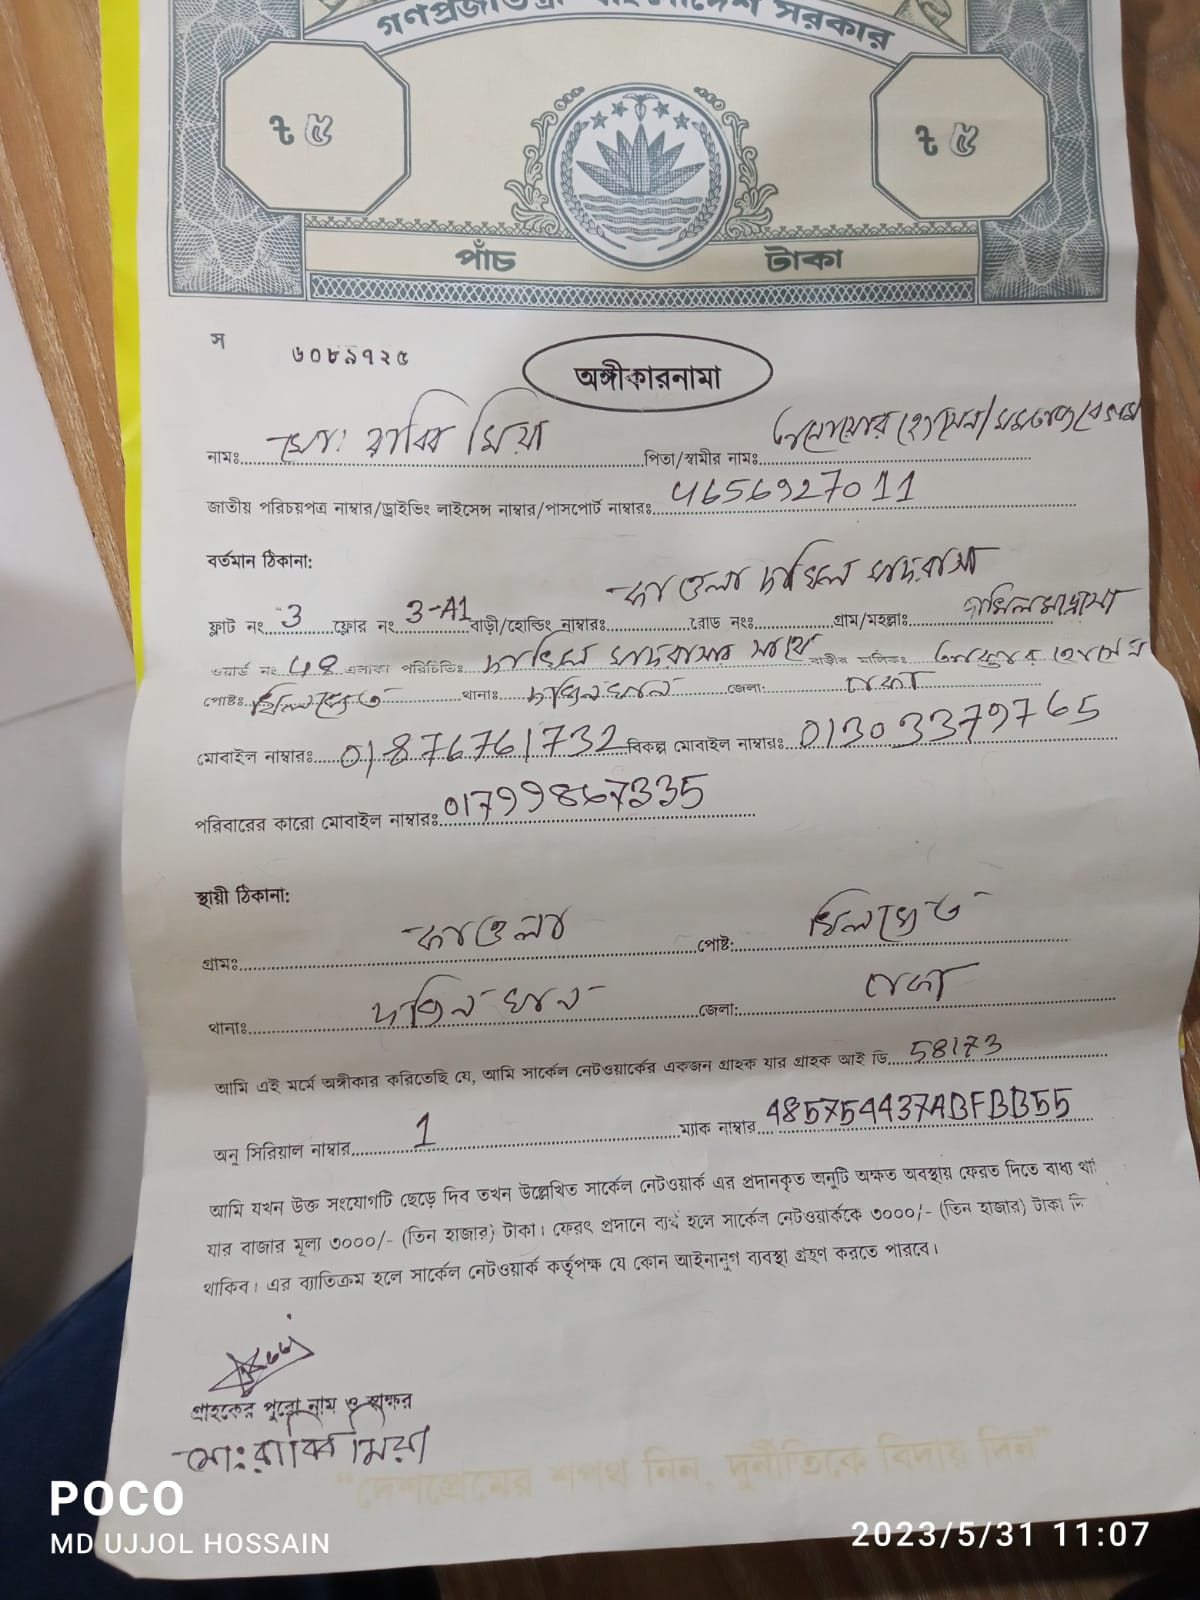 গণপ্রজাতন্ত্রী বাংলাদেশ সরকার
৳ ৫ ৳ ৫
পাঁচ টাকা
স ৬০৮৯৭২৫
অঙ্গীকারনামা
নামঃ মো: রাব্বি মিয়া পিতা/স্বামীর নামঃ
জাতীয় পরিচয়পত্র নাম্বার/ড্রাইভিং লাইসেন্স নাম্বার/পাসপোর্ট নাম্বারঃ 4656927011
বর্তমান ঠিকানা:
কাওলা দাখিল মাদরাসা
ফ্লাট নং 3 ফ্লোর নং 3-A1 বাড়ী/হোল্ডিং নাম্বারঃ রোড নংঃ গ্রাম/মহল্লাঃ
ওয়ার্ড নং 48 এলাকা পরিচিতিঃ দাখিল মাদরাসার সাথে বাড়ীর মালিকঃ
পোষ্টঃ খিলক্ষেত থানাঃ দক্ষিনখান জেলা: ঢাকা
মোবাইল নাম্বারঃ 01876761732 বিকল্প মোবাইল নাম্বারঃ 01303379765
পরিবারের কারো মোবাইল নাম্বারঃ 01799867335
স্থায়ী ঠিকানা:
গ্রামঃ কাওলা পোষ্ট: খিলক্ষেত
থানাঃ দক্ষিন খান জেলা: ঢাকা
আমি এই মর্মে অঙ্গীকার করিতেছি যে, আমি সার্কেল নেটওয়ার্কের একজন গ্রাহক যার গ্রাহক আই ডি 58173
অনু সিরিয়াল নাম্বার 1 ম্যাক নাম্বার 485754437ABFBB55
আমি যখন উক্ত সংযোগটি ছেড়ে দিব তখন উল্লেখিত সার্কেল নেটওয়ার্ক এর প্রদানকৃত অনুটি অক্ষত অবস্থায় ফেরত দিতে বাধ্য
যার বাজার মূল্য ৩০০০/- (তিন হাজার) টাকা। ফেরৎ প্রদানে ব্যর্থ হলে সার্কেল নেটওয়ার্ককে ৩০০০/- (তিন হাজার) টাকা
থাকিব। এর ব্যাতিক্রম হলে সার্কেল নেটওয়ার্ক কর্তৃপক্ষ যে কোন আইনানুগ ব্যবস্থা গ্রহণ করতে পারবে।
গ্রাহকের পুরো নাম ও স্বাক্ষর
মো: রাব্বি মিয়া
"দেশপ্রেমের শপথ নিন, দুর্নীতিকে বিদায় দিন"
POCO
MD UJJOL HOSSAIN
2023/5/31 11:07